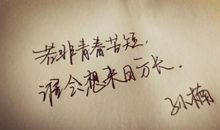 若非青春苦短，
谁会想来日方长。
孙楠